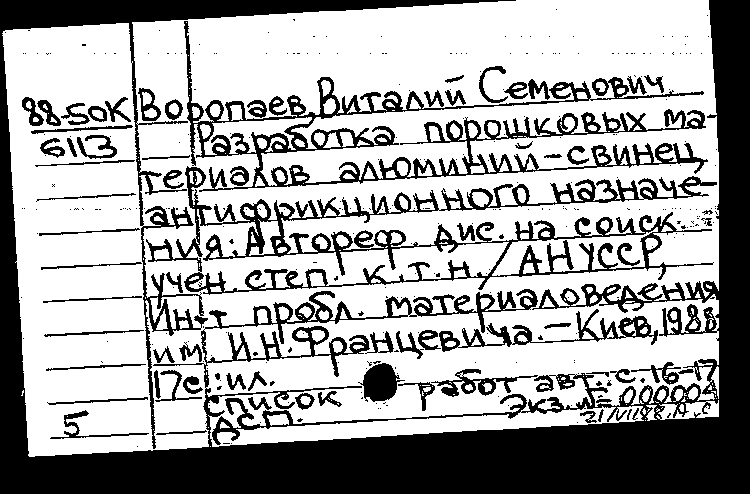 88-50К Воропаев, Виталий Семенович
6113 Разработка порошковых ма-
териалов алюминий-свинец
антифрикционного назначе-
ния: Автореф. дис. на соиск.
учен. степ. к.т.н. / АН УССР,
Ин-т пробл. материаловедения
им. И.Н. Францевича. - Киев, 1988
17 с.: ил.
список работ авт.: с. 16-17
ДСП. Экз. №=000004
5